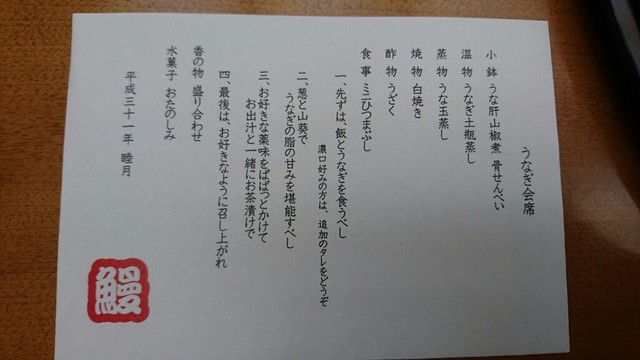 うなぎ会席
小鉢 うな肝山椒煮 骨せんべい
温物 うなぎ土瓶蒸し
蒸物 うな玉蒸し
焼物 白焼き
酢物 うざく
食事 ミニひつまぶし
一、先ずは、飯とうなぎを食うべし
濃口好みの方は、追加のタレをどうぞ
二、葱と山葵で
うなぎの脂の甘みを堪能すべし
三、お好きな薬味をぱぱっとかけて
お出汁と一緒にお茶漬けで
四、最後は、お好きなように召し上がれ
香の物 盛り合わせ
水菓子 おたのしみ
平成三十一年 睦月
鰻